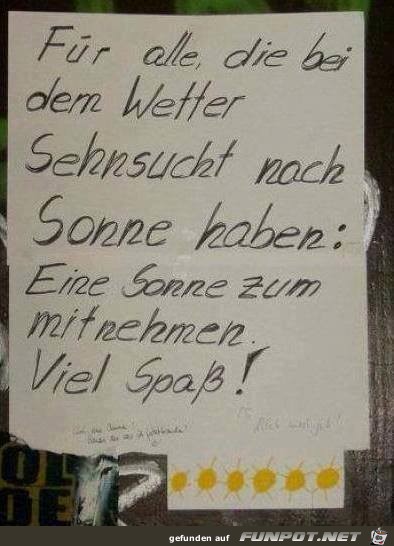 Für alle, die bei
dem Wetter
Sehnsucht nach
Sonne haben:
Eine Sonne zum
mitnehmen.
Viel Spaß!
gefunden auf FUNPOT.NET